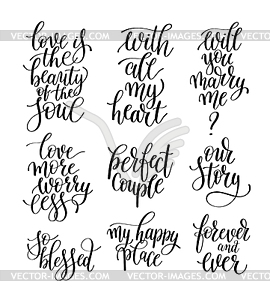 love is
the
beauty
of the
soul
with
all
my
heart
will
you
marry
me
?
love
more
worry
less
perfect
couple
our
story
so
blessed
my happy
place
forever
and
ever
VECTOR-IMAGES.COM